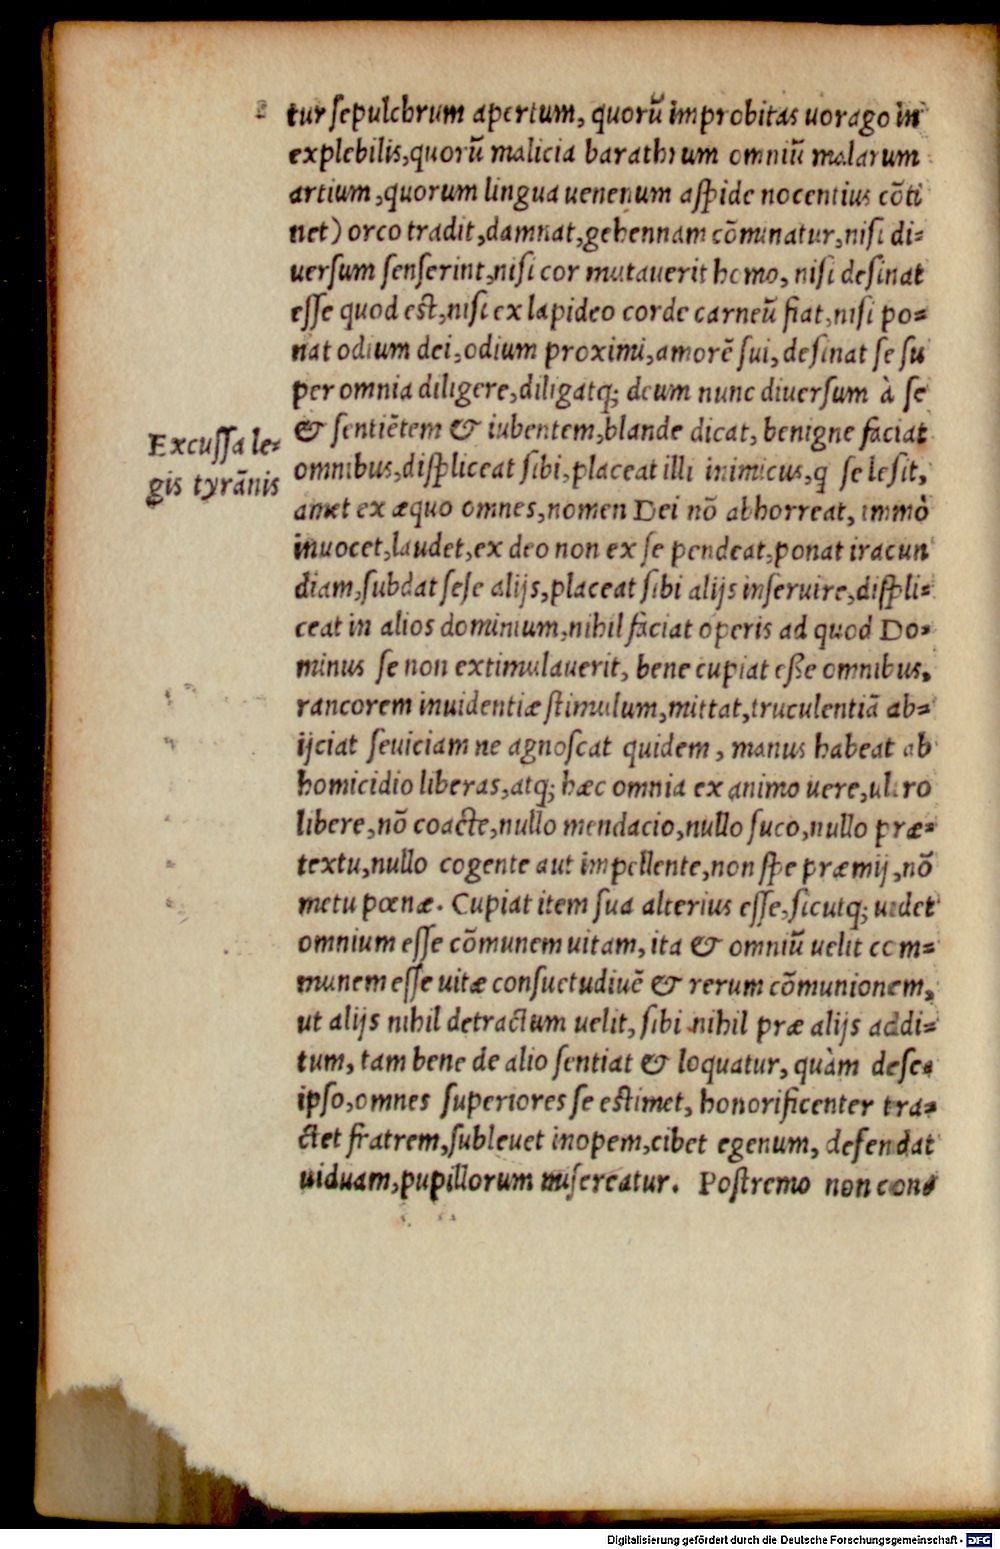 tur sepulchrum apertum, quorũ improbitas uorago in
explebilis, quorũ malicia barathrum omniũ malarum
artium, quorum lingua uenenum aspide nocentius cõti
net) orco tradit, damnat, gehennam cõminatur, nisi di-
uersum senserint, nisi cor mutauerit homo, nisi desinat
esse quod est, nisi ex lapideo corde carneũ fiat, nisi po-
nat odium dei, odium proximi, amorẽ sui, desinat se su
per omnia diligere, diligatq; deum nunc diuersum à se
& sentiẽtem & iubentem, blande dicat, benigne faciat
omnibus, displiceat sibi, placeat illi inimicus, q se lesit,
amet ex æquo omnes, nomen Dei nõ abhorreat, immò
inuocet, laudet, ex deo non ex se pendeat, ponat iracun
diam, subdat sese alijs, placeat sibi alijs inseruire, displi-
ceat in alios dominium, nihil faciat operis ad quod Do-
minus se non extimulauerit, bene cupiat esse omnibus,
rancorem inuidentiæ stimulum, mittat, truculentiã ab-
ijciat seuiciam ne agnoscat quidem, manus habeat ab
homicidio liberas, atq; hæc omnia ex animo uere, ultro
libere, nõ coacte, nullo mendacio, nullo suco, nullo præ-
textu, nullo cogente aut impellente, non spe præmij, nõ
metu pœnæ. Cupiat item sua alterius esse, sicutq; uidet
omnium esse cõmunem uitam, ita & omniũ uelit com-
munem esse uitæ consuetudiuẽ & rerum cõmunionem,
ut alijs nihil detractum uelit, sibi nihil præ alijs addi-
tum, tam bene de alio sentiat & loquatur, quàm de se-
ipso, omnes superiores se estimet, honorificenter tra-
ctet fratrem, subleuet inopem, cibet egenum, defendat
uiduam, pupillorum misereatur. Postremo non con-
Excussa le-
gis tyrãnis
Digitalisierung gefördert durch die Deutsche Forschungsgemeinschaft - DFG